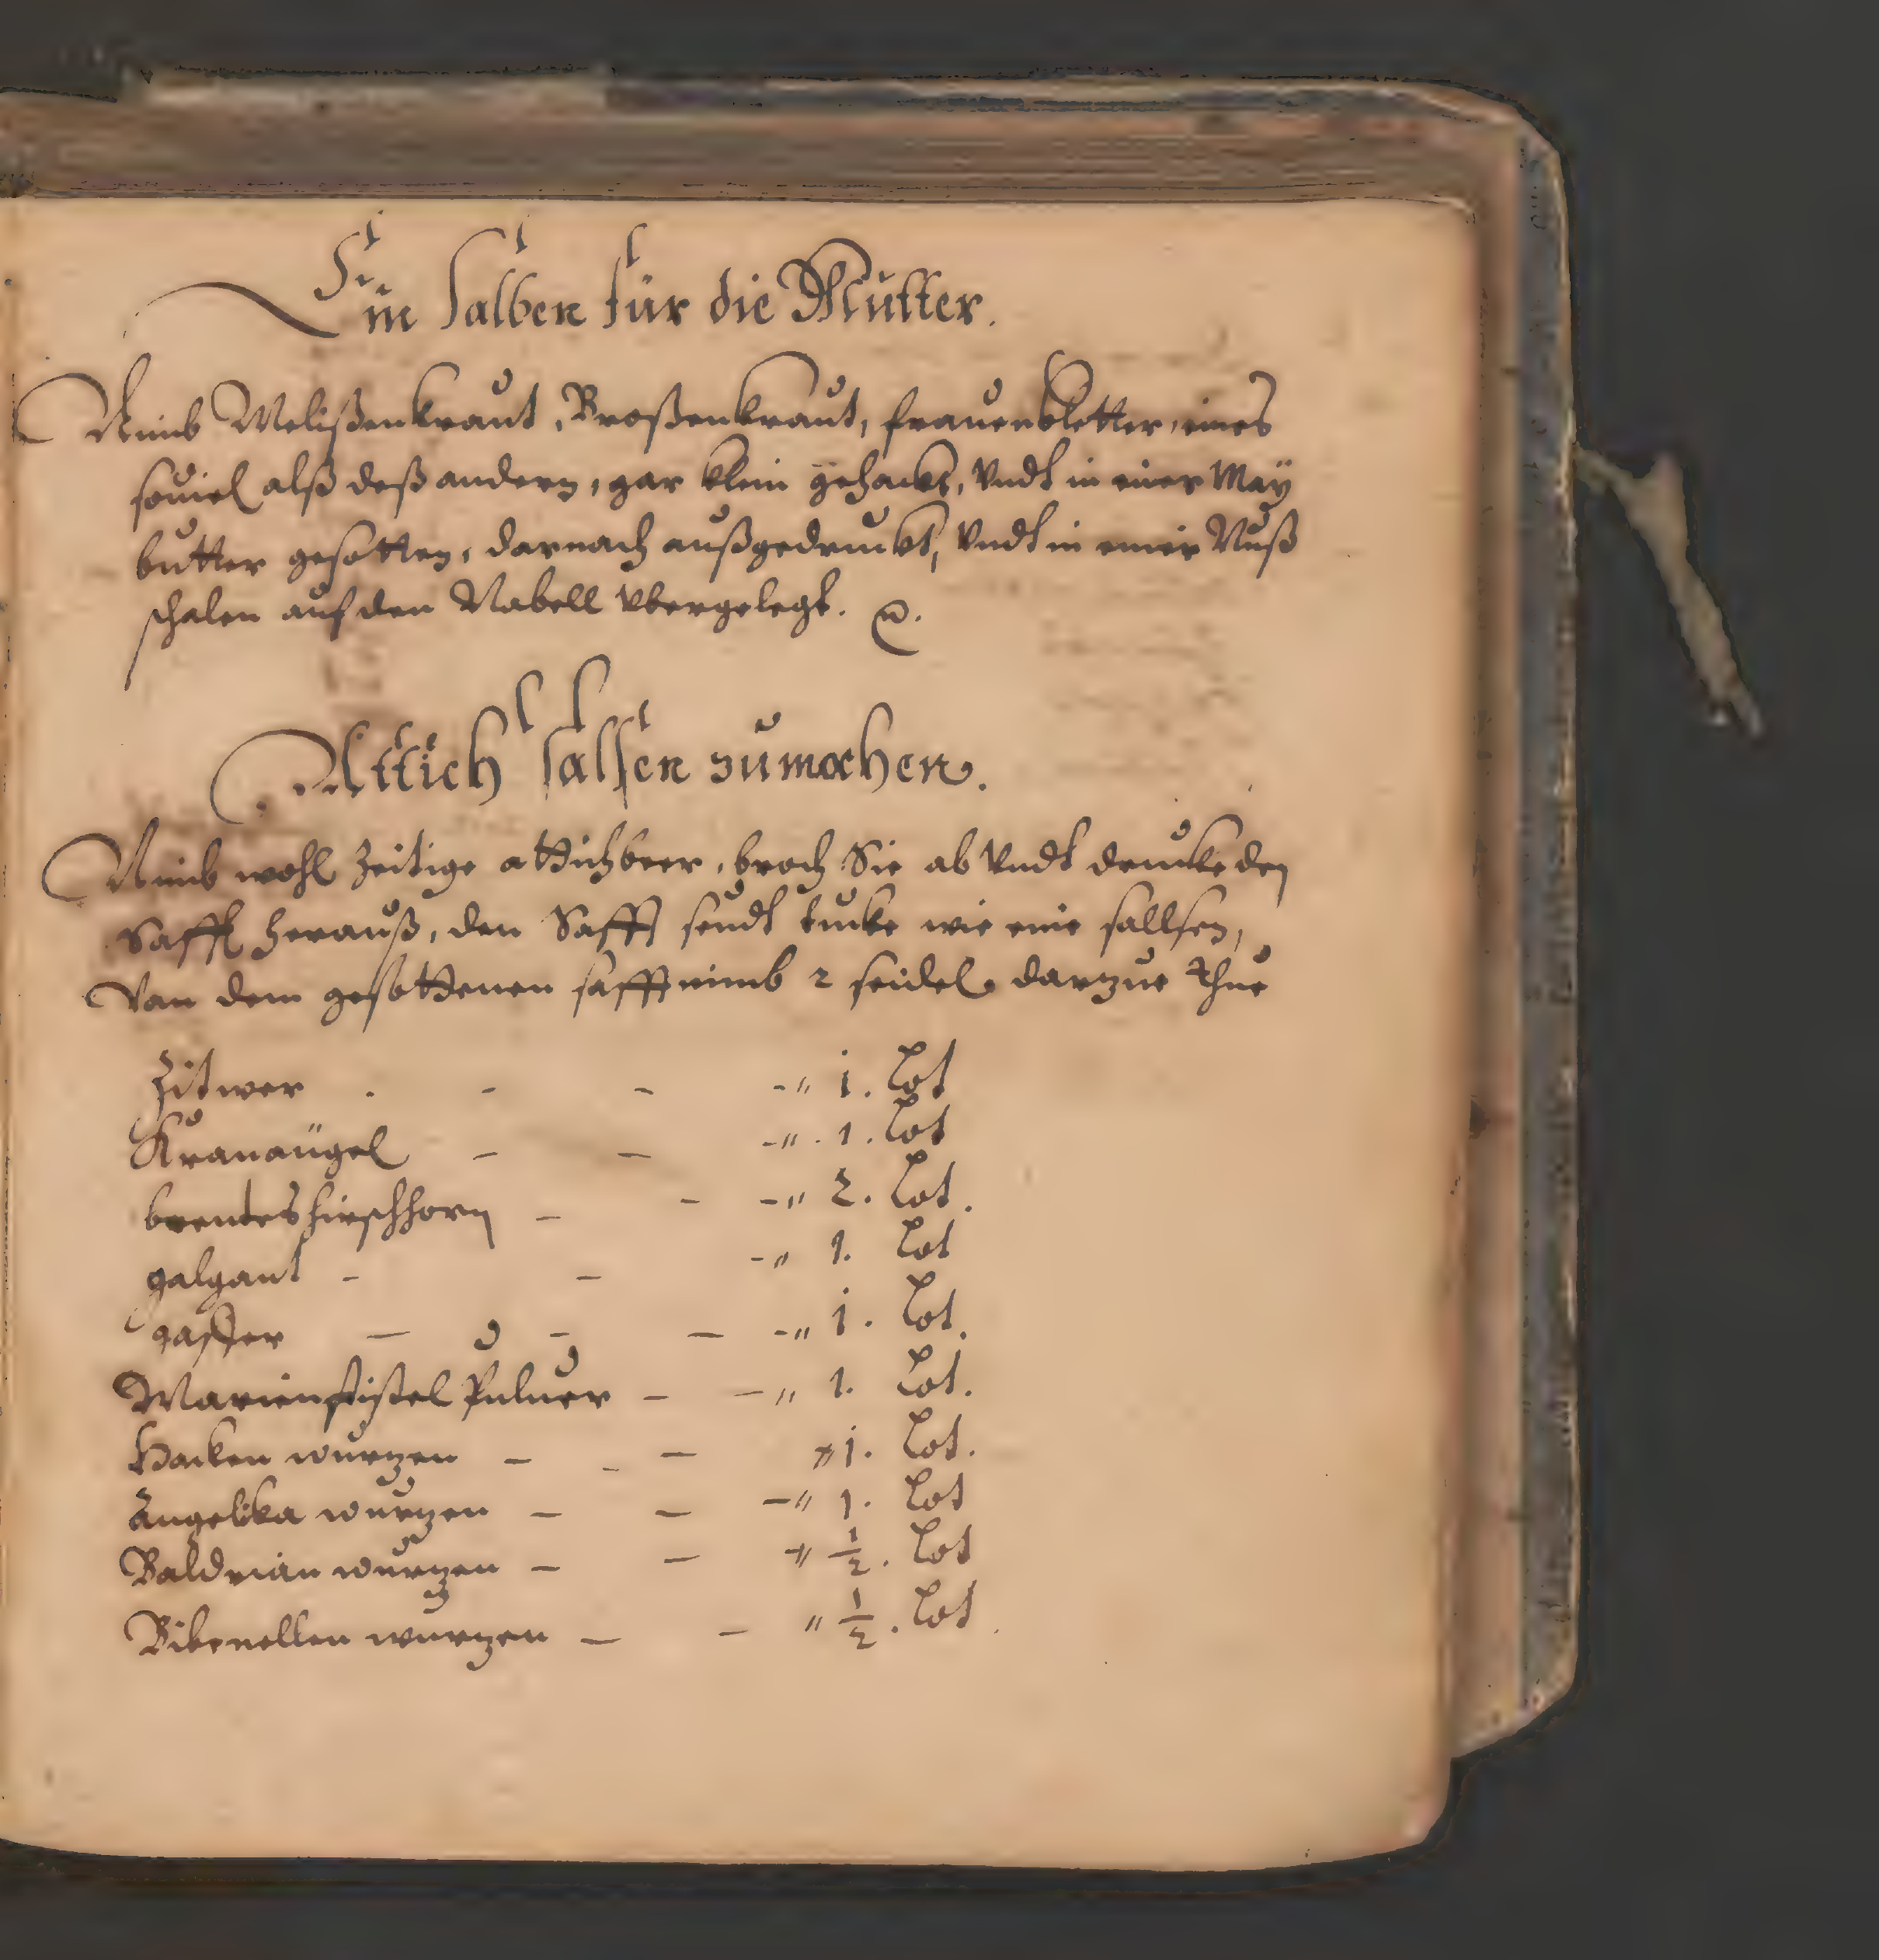 Ein Salben für die Mutter.
Nimb Melißenkraut, Broßenkraut, frauenbletter, eines
souiel alß deß andern, gar klein gehackt, Vndt in einer May
butter gesotten, darnach außgedruckt, Vndt in einer Nuß
schalen auf den Nabell vbergelegt.
Attich salsen zumachen.
Nimb wohl Zeitige attichbeer, broch Sie ab Vndt drucke den
Safft herauß, den Safft seudt dicke wie eine sallsen,
Von dem gesottenen safft nimb 2 seidel darzue thue
Zitwer - - - 1. Lot
Kranaügel - - - 1. Lot
brentes hirschhorn - - - 2. Lot.
galgant - - - 1. Lot
gaffer - - - - 1. Lot.
Marienstistel Puluer - - 1. Lot.
Hacken wurzen - - - 1. Lot.
Angelika wurzen - - - 1. Lot
Baldrian wurzen - - 1/2. Lot
Bibenellen wurzen - - 1/2. Lot.